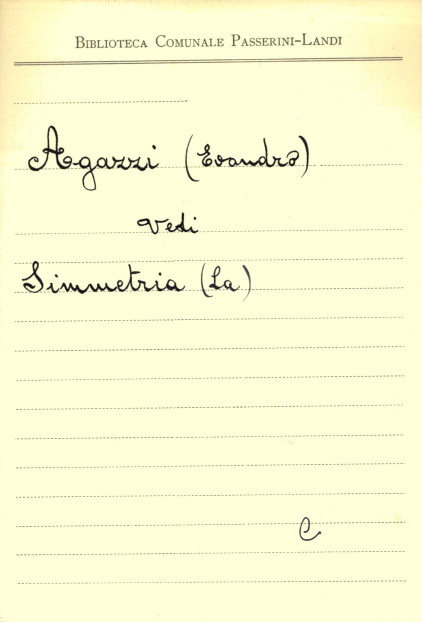 Biblioteca Comunale Passerini-Landi
Agazzi (Evandro)
vedi
Simmetria (La)
C